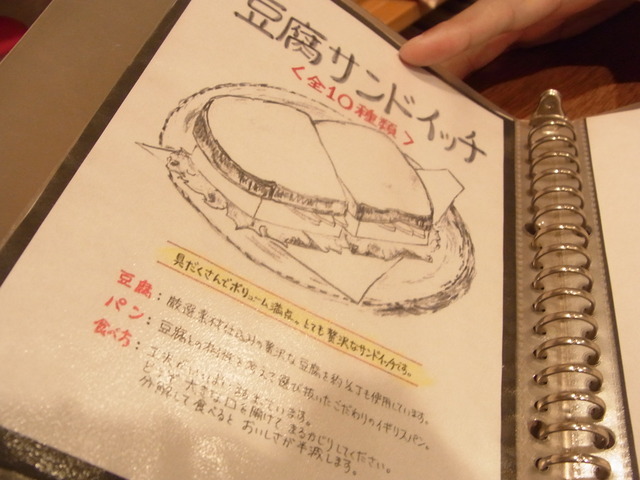 豆腐サンドイッチ
<全10種類>
具だくさんでボリューム満点。とても贅沢なサンドイッチです。
豆腐：厳選素材仕込みの贅沢な豆腐を約1/2丁も使用しています。
パン：豆腐との相性を考えて選び抜いたこだわりのイギリスパン。
食べ方：工夫がいっぱい詰まっています。
どーぞ大きな口を開けてまるかじりしてください。
分解して食べるとおいしさが半減します。